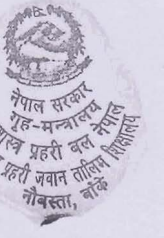 नेपाल सरकार
गृह-मन्त्रालय
प्रहरी बल नेपाल
प्रहरी जवान तालिम शिक्षालय
नौबस्ता, बाँके